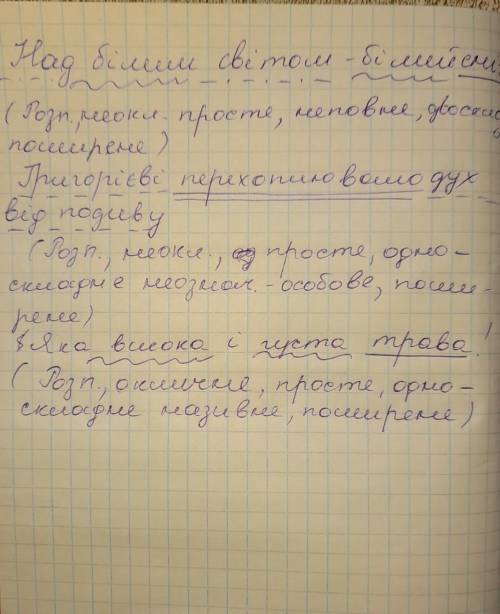 Над білим світом - білий сні
(Розп., неокл. просте, неповне, двоскла
поширене)
Григорієві перехоплювало дух
від подиву
(Розп., неокл., просте, одно-
складне неознач. - особове, поши-
рене)
Яка висока і густа трава!
(Розп., оклична, просте, одно-
складне називне, поширене)